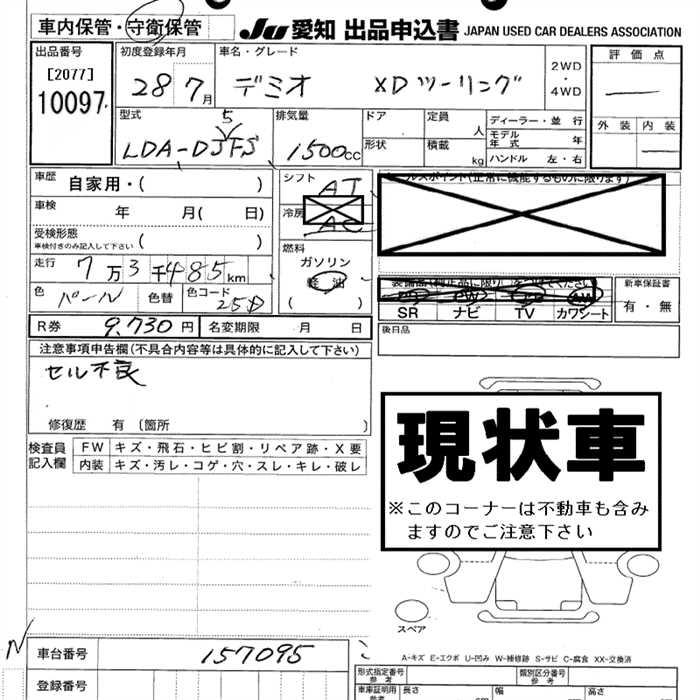 車内保管・守衛保管
JU 愛知 出品申込書 JAPAN USED CAR DEALERS ASSOCIATION
出品番号
[2077]
10097
初度登録年月
28 7月
車名・グレード
デミオ XDツーリング
2WD
・
4WD
評価点
外装 内装
型式
5
LDA-DJFS
排気量
1500cc
ドア
定員
人
形状
積載
kg
ディーラー・並行
モデル年式 年
ハンドル 左・右
車歴
自家用・( )
車検
年 月( 日)
受検形態
車検付きのみ記入して下さい ( )
走行
7万3千485km
色
パール
色替
色コード
25D
シフト
AT
冷房
AC
燃料
ガソリン
軽油
( )
ルスポイント(正常に機能するものに限ります)
装備品(純正品に限り)
SR ナビ TV カワシート
新車保証書
有・無
R券 9,730円
名変期限 月 日
後日品
注意事項申告欄(不具合内容等は具体的に記入して下さい)
セル不良
修復歴 有〔箇所 〕
検査員記入欄
FW キズ・飛石・ヒビ割・リペア跡・X要
内装 キズ・汚レ・コゲ・穴・スレ・キレ・破レ
現状車
※このコーナーは不動車も含み
ますのでご注意下さい
スペア
A-キズ E-エクボ U-凹み W-補修跡 S-サビ C-腐食 XX-交換済
N
車台番号
157095
登録番号
形式指定番号
参考
類別区分番号
参考
車庫証明用
参考
長さ
幅
高さ